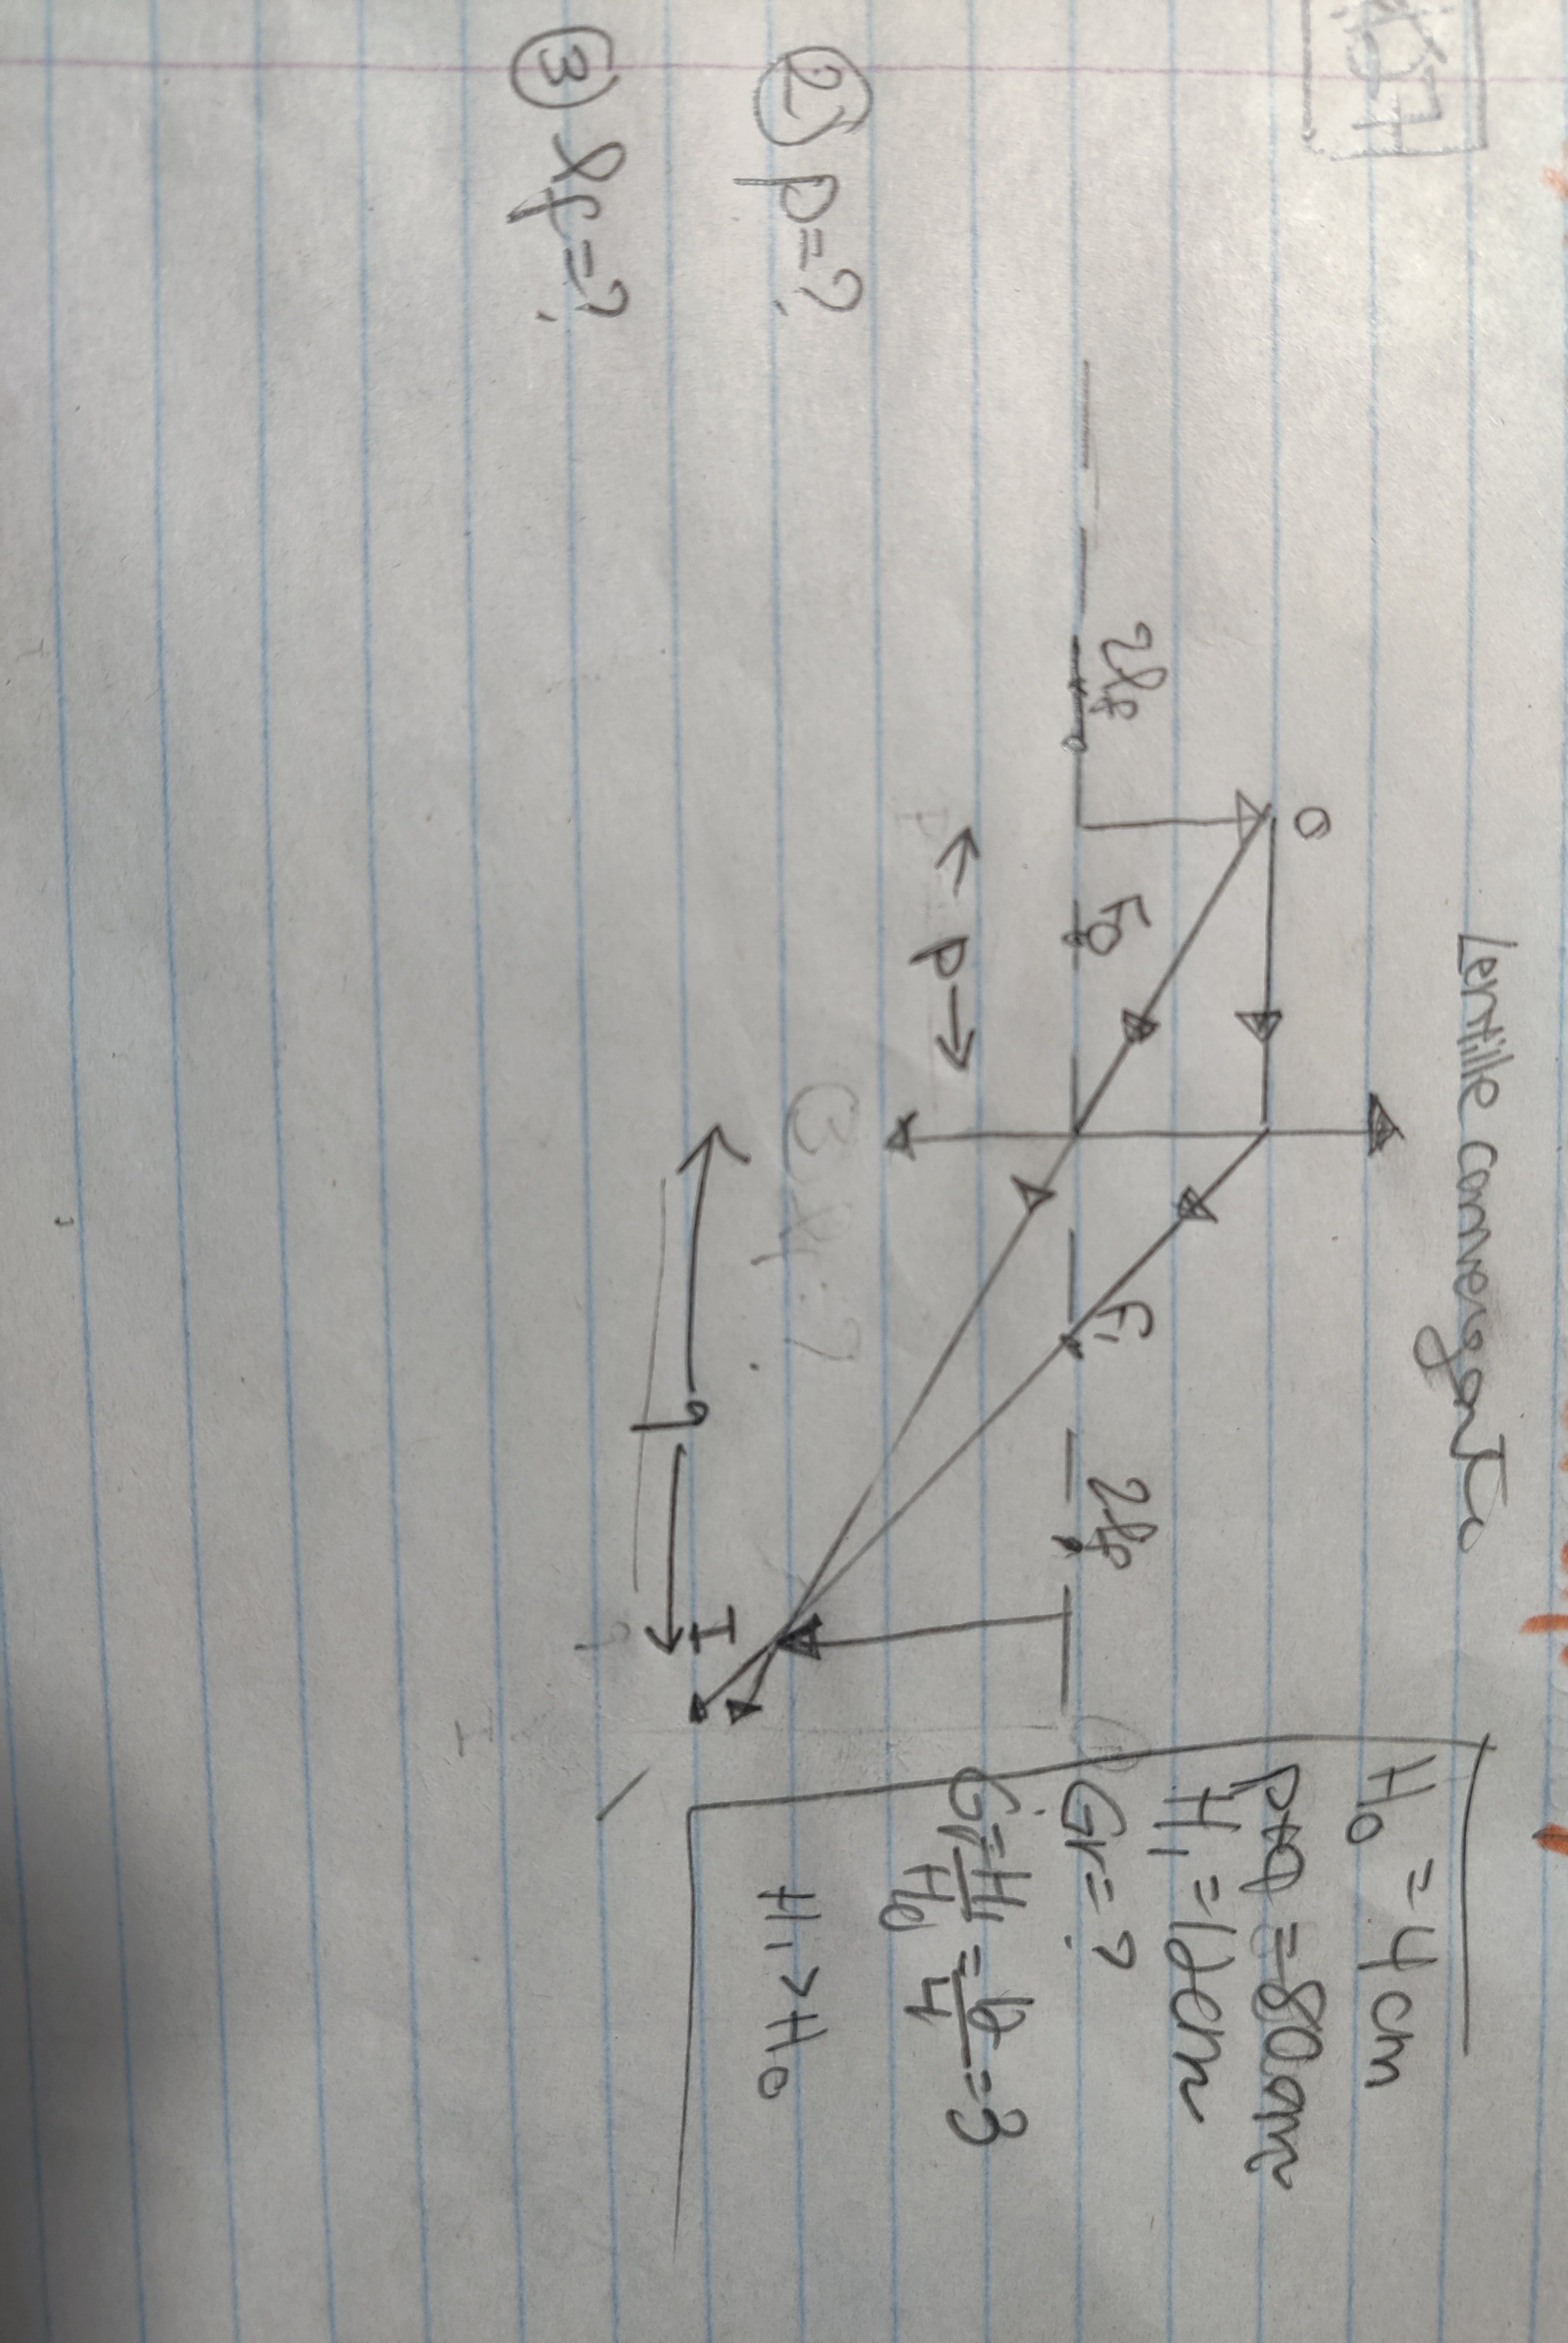 Lentille convergente
H₀ = 4 cm
p+q = 80cm
H₁ = 12cm
Gr = ?
Gr = H₁/H₀ = 12/4 = 3
H₁ > H₀
O
2lf
F₀
F₁
2lf
← p →
← q →
I
② p = ?
③ lf = ?